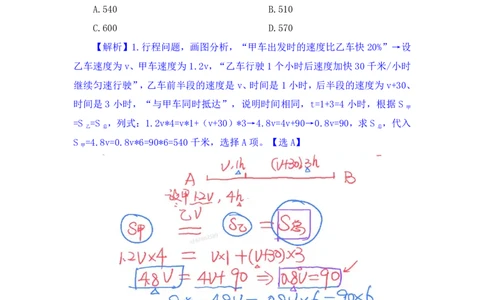 A.540 B.510
C.600 D.570
【解析】1.行程问题，画图分析，“甲车出发时的速度比乙车快 20%”→设
乙车速度为 v、甲车速度为 1.2v，“乙车行驶 1 个小时后速度加快 30 千米/小时
继续匀速行驶”，乙车前半段的速度是 v、时间是 1 小时，后半段的速度为 v+30、
时间是 3 小时，“与甲车同时抵达”，说明时间相同，t=1+3=4 小时，根据 S甲
=S乙=S总，列式：1.2v*4=v*1+（v+30）*3→4.8v=4v+90→0.8v=90，求 S总，代入
S甲=4.8v=0.8v*6=90*6=540 千米，选择 A 项。【选 A】
V,1h (V+30)3h
A B
设甲1.2V, 4h
乙V
S甲 = S乙 = S总
1.2V×4 = V×1+(V+30)×3
4.8V = 4V+90 ⇒ 0.8V=90